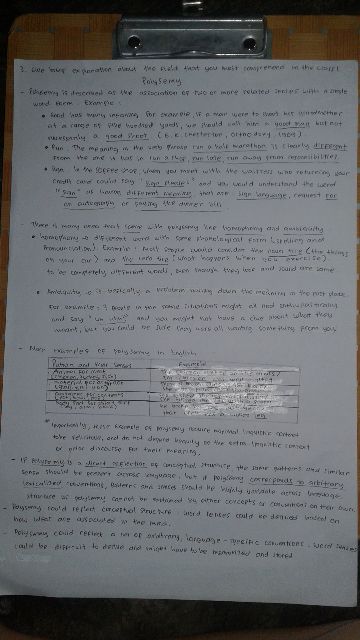 3. Give more explanation about the field that you most comprehend in the class!
Polysemy
- Polysemy is described as the association of two or more related senses with a single
word form. Example :
• Good has many meaning. For example, if a man were to shoot his grandmother
at a range of five hundred yards, we should call him a good shot, but not
necessarily a good man. (G. K. Chesterton, Orthodoxy, 1909)
• Run. The meaning in the verb phrase run a half marathon is clearly different
from the one it has in run a shop, run late, run away from responsibilities.
• Sign. In the coffee shop when you meet with the waitress who returning your
credit card could say "sign please" and you would understand the word
"sign" as having different meaning that are sign language, request for
an autograph or paying the dinner bill.
There is many area that same with polysemy like homophony and ambiguity
• Homophony → different word with same phonological form (spelling and
pronunciation). Example : Most people would consider the (the things
on your car) and (what happens when you exercise)
to be completely different words, even though they look and sound are same.
• Ambiguity → is basically a problem nailing down the meaning in the first place.
For example : 3 people in you some situations might all nod enthusiastically
and say "uh huh!" and you might not have a clue about what they
meant, but you could be sure they were all wanting something from you.
- More Examples of Polysemy in English
Pattern and their senses | Example
Animal for meat
Material for
Body part for object part
* Importantly, these example of polysemy require minimal linguistic context
to be felicitous, and do not depend heavily on the extra linguistic context
or prior discourse for their meaning.
- If Polysemy is a direct reflection of conceptual structure the same patterns and similar
sense should be present across language, but if polysemy corresponds to arbitrary,
lexicalized conventions, patterns and senses should be highly variable across language.
structure of polysemy cannot be explained by either concepts or conventions on their own.
- Polysemy could reflect conceptual structure. word senses could be derived based on
how what are associated in the mind.
- Polysemy could reflect a set of arbitrary, language-specific conventions. word senses
could be difficult to derive and might have to be memorized and stored